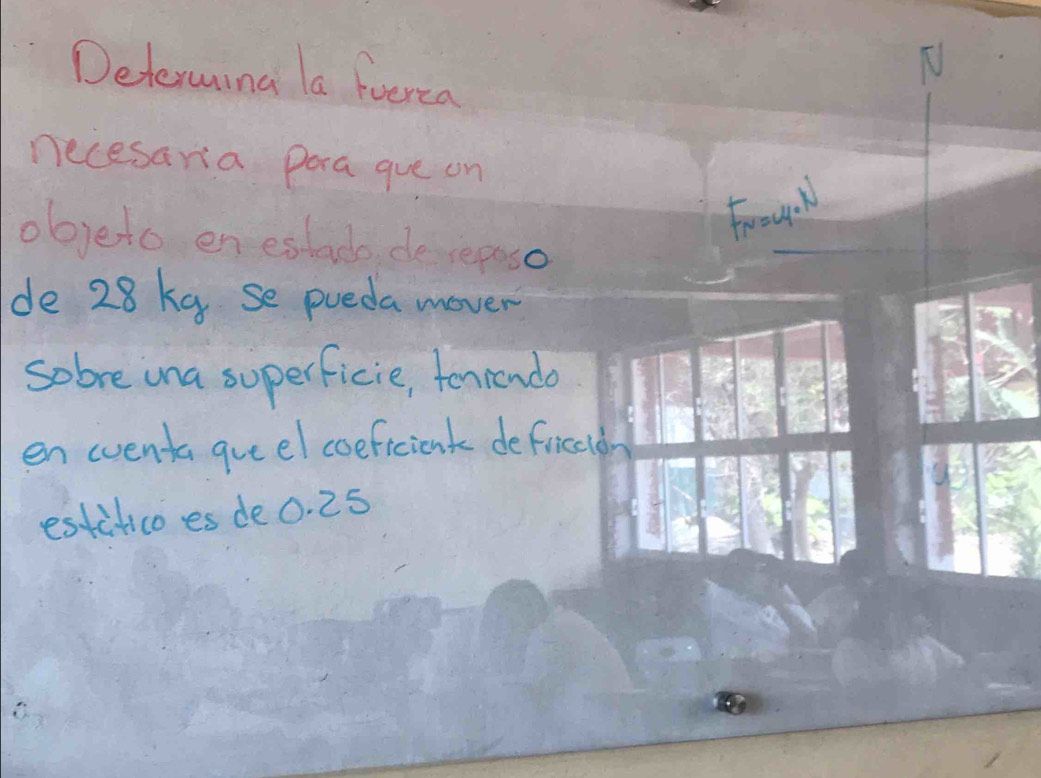 Determina la fuerza
necesaria para que un
objeto en estado de reposo
de 28 kg se pueda mover
sobre una superficie, teniendo
en cuenta que el coeficiente de fricción
estático es de 0.25
N
FN=μ•N
w